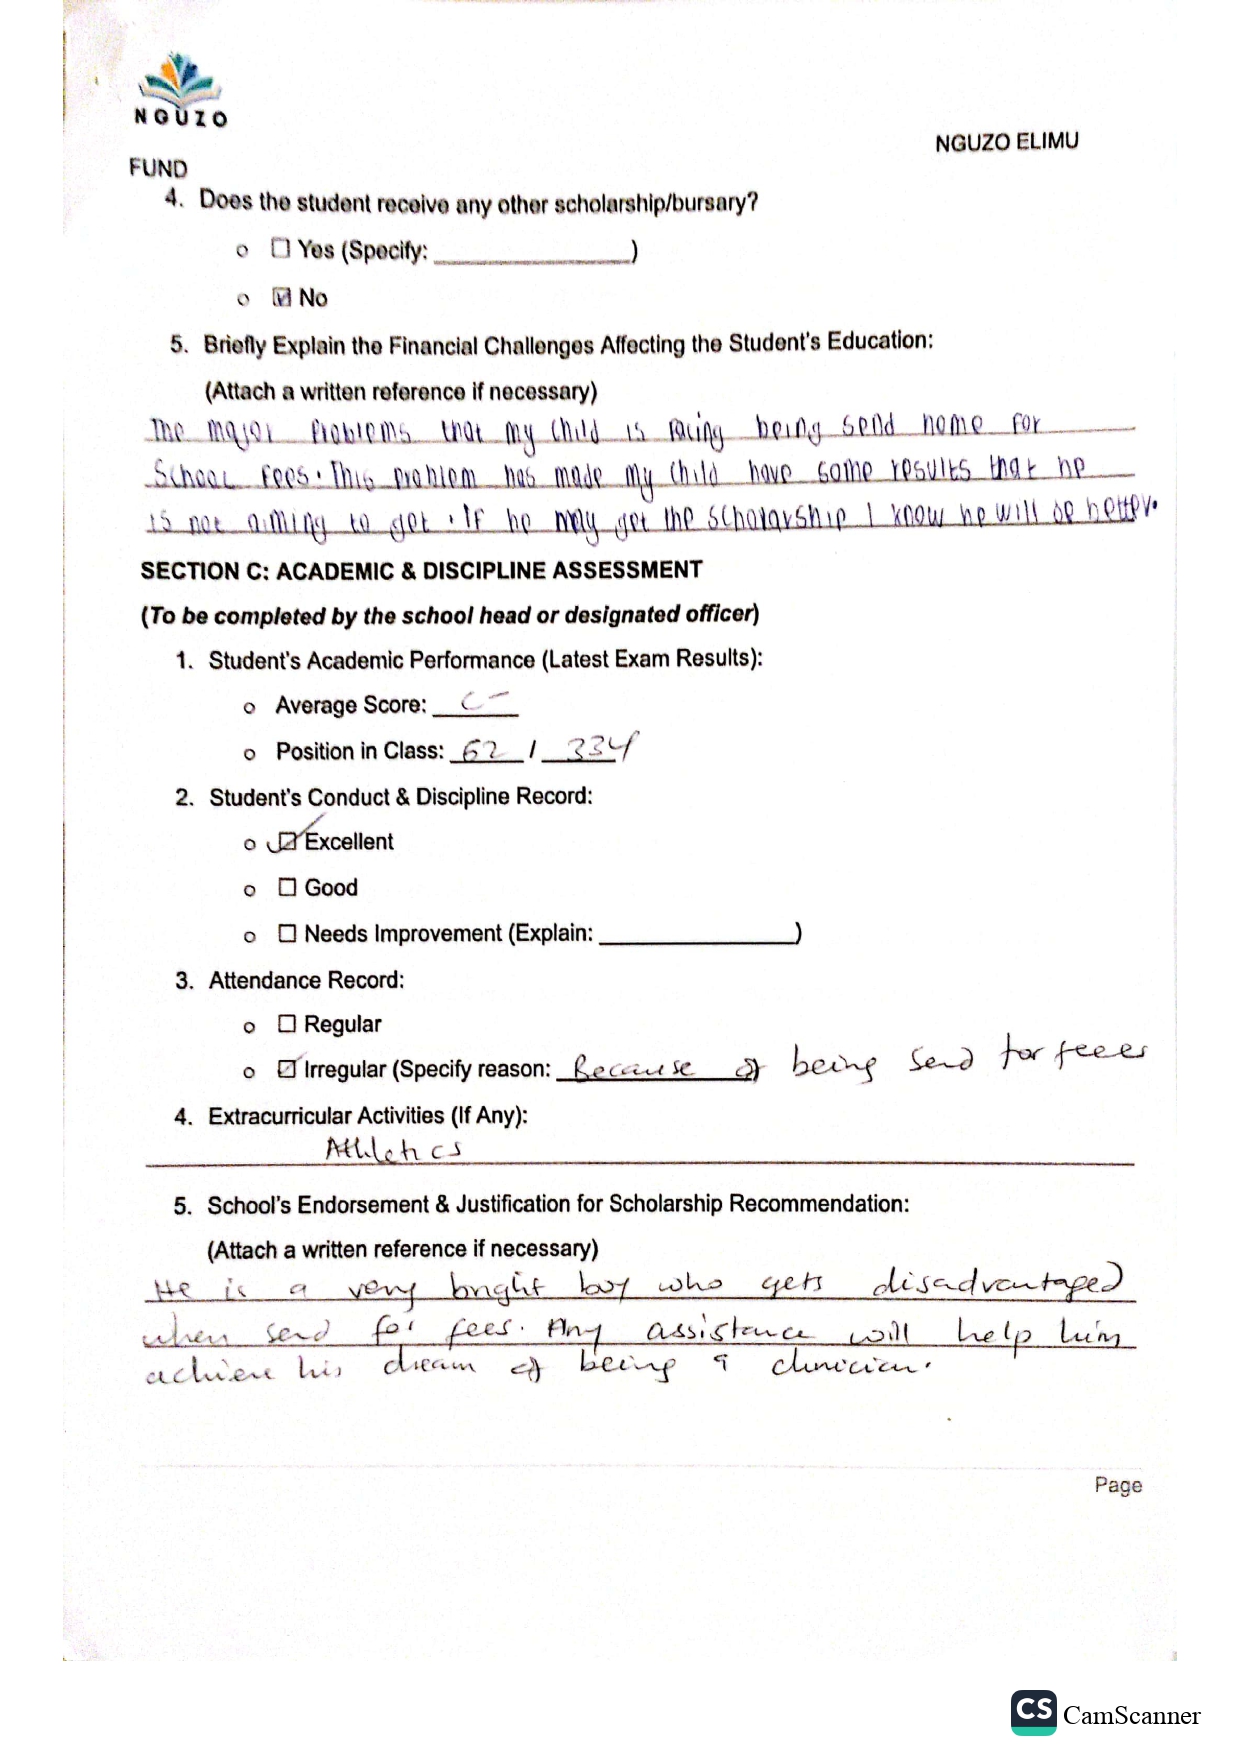 NGUZO
NGUZO ELIMU
FUND
4. Does the student receive any other scholarship/bursary?
o ☐ Yes (Specify: ______________)
o ☑ No
5. Briefly Explain the Financial Challenges Affecting the Student's Education:
(Attach a written reference if necessary)
The major Problems that my child is facing being send home for
School Fees. This problem has made my child have some results that he
is not aiming to get. If he may get the scholarship I know he will be better.
SECTION C: ACADEMIC & DISCIPLINE ASSESSMENT
(To be completed by the school head or designated officer)
1. Student's Academic Performance (Latest Exam Results):
o Average Score: C-
o Position in Class: 62 / 334
2. Student's Conduct & Discipline Record:
o ☑ Excellent
o ☐ Good
o ☐ Needs Improvement (Explain: ______________)
3. Attendance Record:
o ☐ Regular
o ☑ Irregular (Specify reason: Because of being send for feees
4. Extracurricular Activities (If Any):
Athletics
5. School's Endorsement & Justification for Scholarship Recommendation:
(Attach a written reference if necessary)
He is a very bright boy who gets disadvantaged
when send for fees. Any assistance will help him
achieve his dream of being a clinician.
Page
CS CamScanner